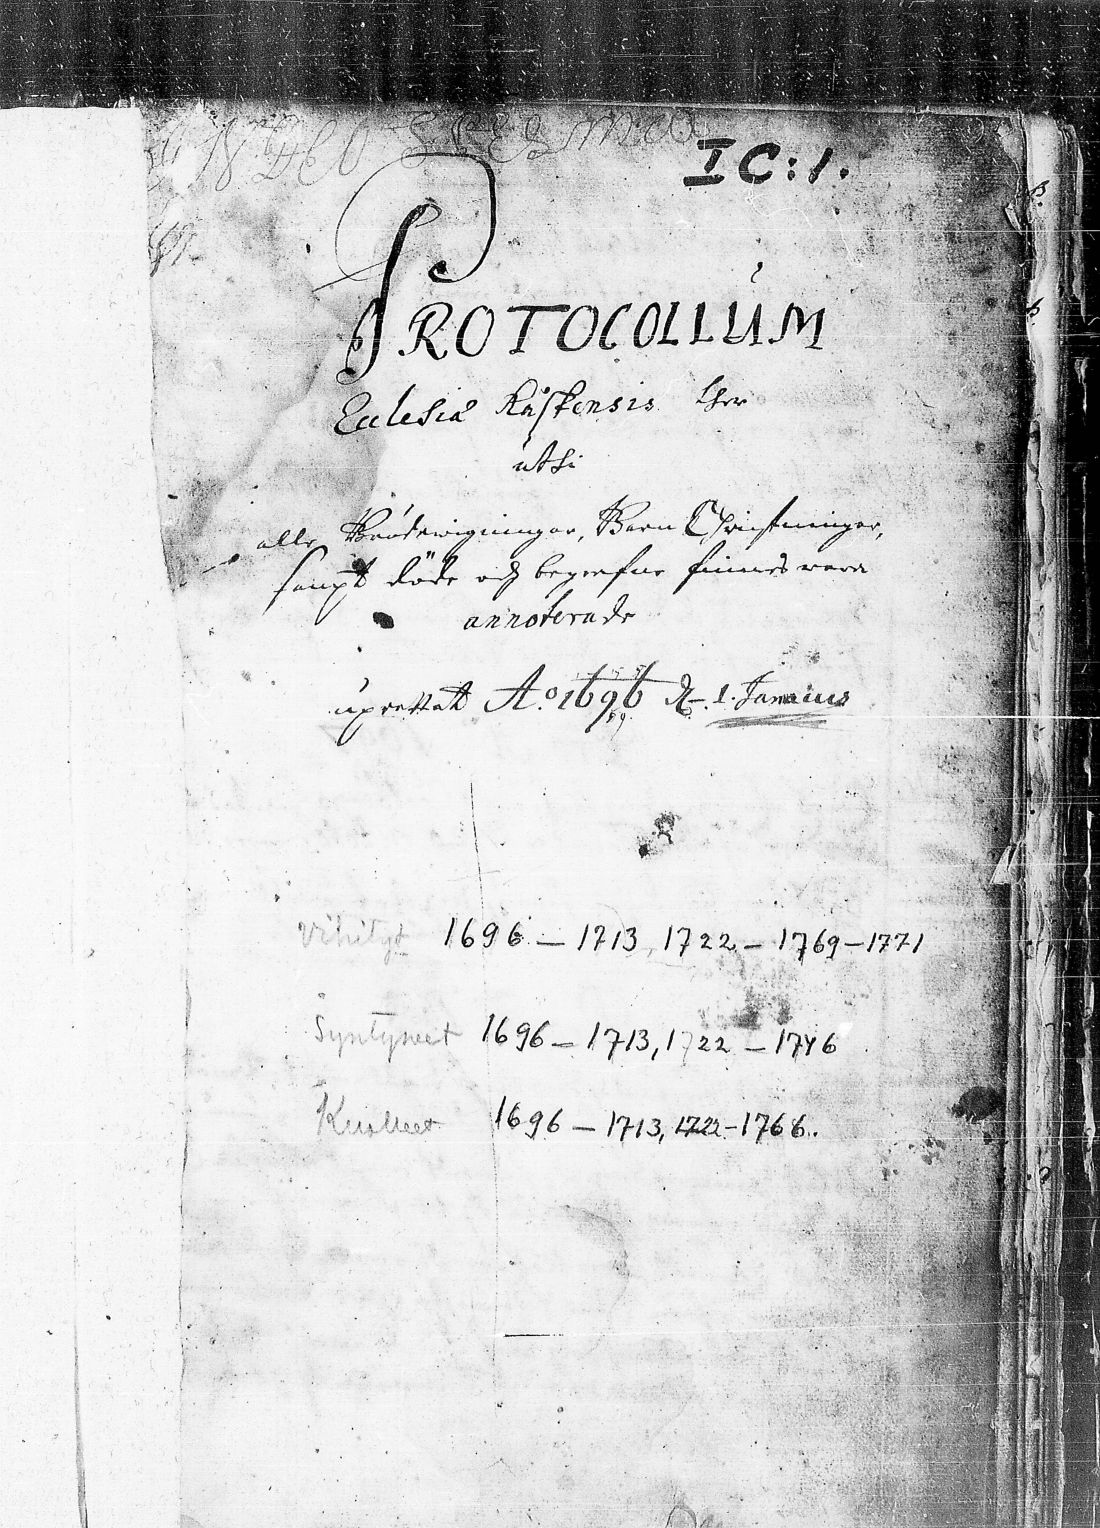 I C:1.
PROTOCOLLUM
Ecclesiæ Kåskensis ther
uthi
alle Brudewigningar, Barn Christningar,
sampt döde och begrafne finnes wara
annoterade
uprettat A:o 1696 d. 1. Januarius
Vihityt 1696 – 1713, 1722 – 1769 – 1771
Syntyneet 1696 – 1713, 1722 – 1746
Kuolleet 1696 – 1713, 1722 – 1768.